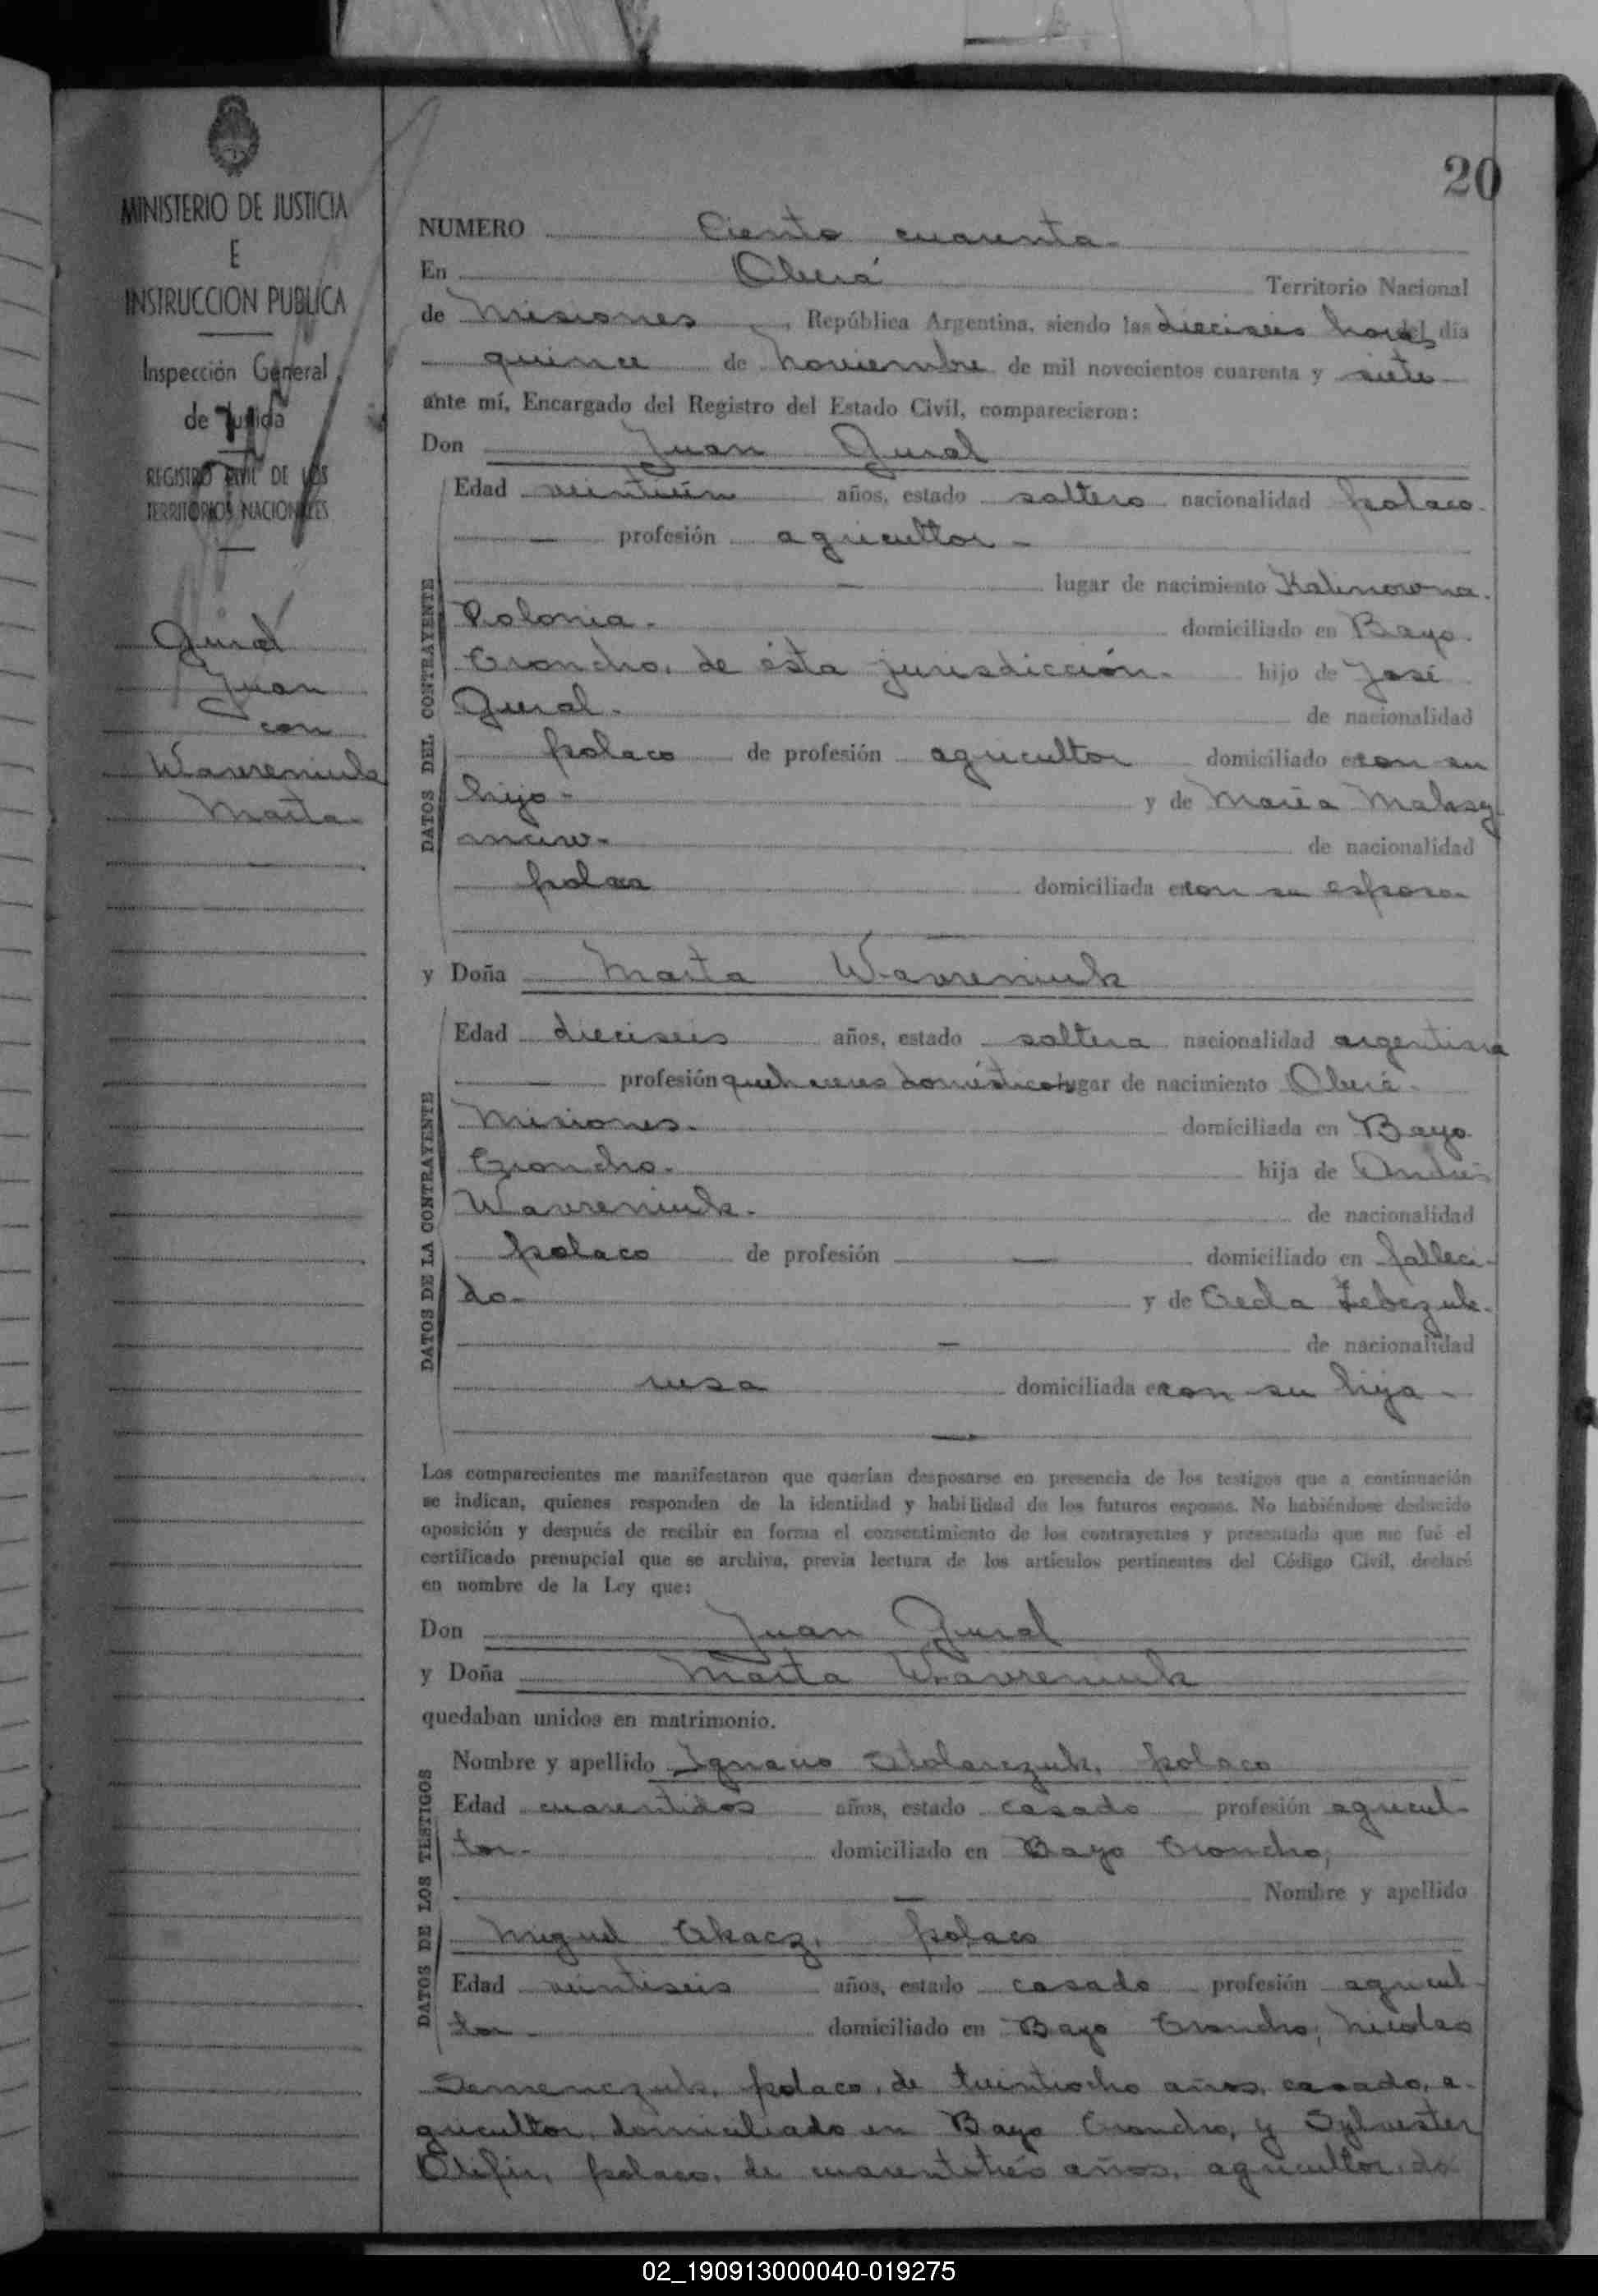 MINISTERIO DE JUSTICIA
E
INSTRUCCION PUBLICA
Inspección General
de Justicia
REGISTRO CIVIL DE LOS
TERRITORIOS NACIONALES
Gural
Juan
con
Wavreniuk
Marta
20
NUMERO Ciento cuarenta
En Oberá Territorio Nacional
de Misiones, República Argentina, siendo las dieciseis horas del día
quince de Noviembre de mil novecientos cuarenta y siete
ante mí, Encargado del Registro del Estado Civil, comparecieron:
Don Juan Gural
DATOS DEL CONTRAYENTE
Edad veintiún años, estado soltero nacionalidad polaco.
— profesión agricultor —
— lugar de nacimiento Kalinowna.
Polonia. domiciliado en Bayo
Troncho, de ésta jurisdicción. hijo de José
Gural. de nacionalidad
polaco de profesión agricultor domiciliado en con su
hijo - y de María Maksy
mciw. de nacionalidad
polaca domiciliada en con su esposo
—
y Doña Marta Wavreniuk
DATOS DE LA CONTRAYENTE
Edad dieciseis años, estado soltera nacionalidad argentina
— profesión quehaceres domésticos lugar de nacimiento Oberá
Misiones. domiciliada en Bayo
Troncho. hija de Andrés
Wavreniuk. de nacionalidad
polaco de profesión — domiciliado en falleci-
do. y de Tecla Lebczuk.
— de nacionalidad
rusa domiciliada en con su hija -
—
Los comparecientes me manifestaron que querían desposarse en presencia de los testigos que a continuación
se indican, quienes responden de la identidad y habilidad de los futuros esposos. No habiéndose deducido
oposición y después de recibir en forma el consentimiento de los contrayentes y presentado que me fué el
certificado prenupcial que se archiva, previa lectura de los artículos pertinentes del Código Civil, declaré
en nombre de la Ley que:
Don Juan Gural
y Doña Marta Wavreniuk
quedaban unidos en matrimonio.
DATOS DE LOS TESTIGOS
Nombre y apellido Ignacio Stolarczuk, polaco
Edad cuarentidos años, estado casado profesión agricul-
tor. domiciliado en Bayo Troncho,
— Nombre y apellido
Miguel Tkacz, polaco
Edad veintiseis años, estado casado profesión agricul-
tor domiciliado en Bayo Troncho; Nicolas
Semenczuk, polaco, de treintiocho años, casado, a-
gricultor, domiciliado en Bayo Troncho, y Sylvester
polaco, de cuarentitrés años, agricultor, do
02_190913000040-019275